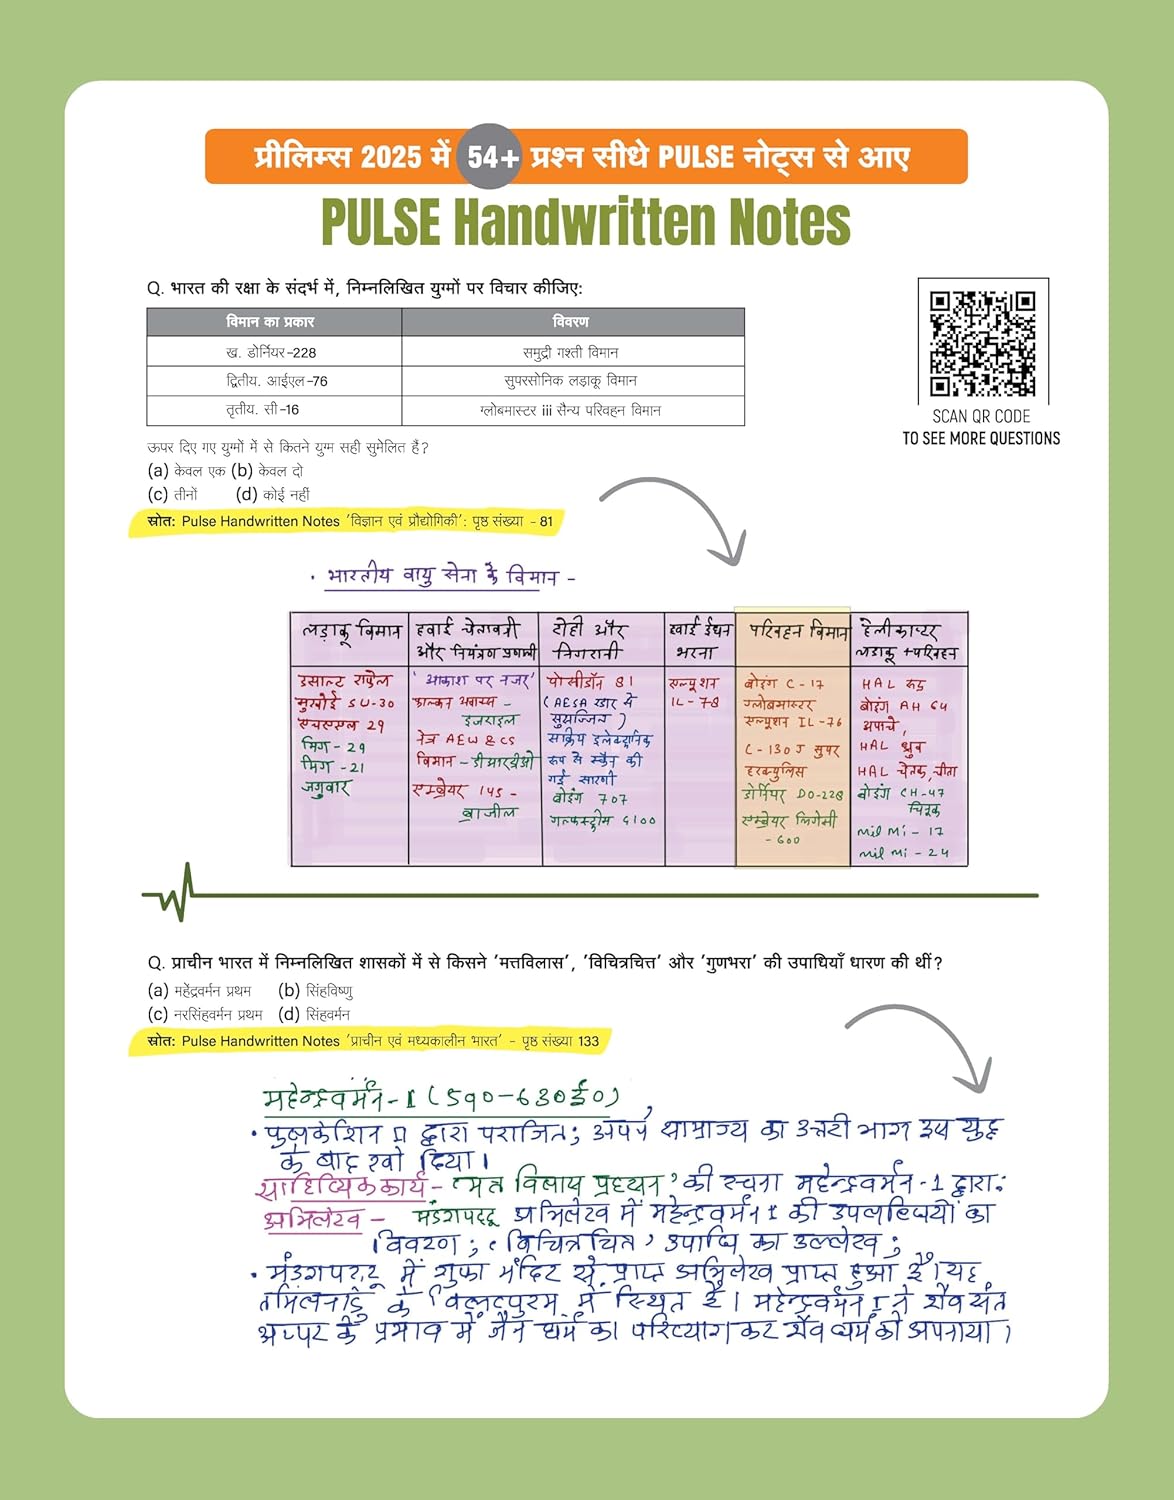 प्रीलिम्स 2025 में 54+ प्रश्न सीधे PULSE नोट्स से आए
PULSE Handwritten Notes
Q. भारत की रक्षा के संदर्भ में, निम्नलिखित युग्मों पर विचार कीजिए:
विमान का प्रकार विवरण
ख. डोर्नियर-228 समुद्री गश्ती विमान
द्वितीय. आईएल-76 सुपरसोनिक लड़ाकू विमान
तृतीय. सी-16 ग्लोबमास्टर iii सैन्य परिवहन विमान
ऊपर दिए गए युग्मों में से कितने युग्म सही सुमेलित हैं?
(a) केवल एक (b) केवल दो
(c) तीनों (d) कोई नहीं
स्रोत: Pulse Handwritten Notes 'विज्ञान एवं प्रौद्योगिकी': पृष्ठ संख्या - 81
SCAN QR CODE
TO SEE MORE QUESTIONS
· भारतीय वायु सेना के विमान -
लड़ाकू विमान
डसाल्ट राफेल
सुखोई SU-30
एचएसएल 29
मिग - 29
मिग - 21
जगुवार
हवाई चेतावनी
और नियंत्रण प्रणाली
'आकाश पर नजर'
फाल्कन अवाक्स -
इजराइल
नेत्र AEW & CS
विमान - डीआरडीओ
एम्ब्रेयर 145 -
ब्राजील
टोही और
निगरानी
पोसीडॉन 81
(AESA रडार से
सुसज्जित)
सक्रिय इलेक्ट्रॉनिक
रूप से स्कैन की
गई सारणी
बोइंग 707
गल्फस्ट्रीम 4100
हवाई ईंधन
भरना
इल्यूशन
IL - 78
परिवहन विमान
बोइंग C - 17
ग्लोबमास्टर
इल्यूशन IL - 76
C - 130 J सुपर
हरक्युलिस
डोर्नियर DO-228
एम्ब्रेयर लिगेसी
- 600
हेलीकाप्टर
लडाकू + परिवहन
HAL रुद्र
बोइंग AH 64
अपाचे,
HAL ध्रुव
HAL चेतक, चीता
बोइंग CH-47
चिनूक
mil mi - 17
mil mi - 24
Q. प्राचीन भारत में निम्नलिखित शासकों में से किसने 'मत्तविलास', 'विचित्रचित्त' और 'गुणभरा' की उपाधियाँ धारण की थीं?
(a) महेंद्रवर्मन प्रथम (b) सिंहविष्णु
(c) नरसिंहवर्मन प्रथम (d) सिंहवर्मन
स्रोत: Pulse Handwritten Notes 'प्राचीन एवं मध्यकालीन भारत' - पृष्ठ संख्या 133
महेन्द्रवर्मन - I (590-630ई०)
· पुलकेशिन II द्वारा पराजित; अपने साम्राज्य का उत्तरी भाग इस युद्ध
के बाद खो दिया।
साहित्यिक कार्य - 'मत्त विलास प्रहसन' की रचना महेन्द्रवर्मन - 1 द्वारा;
अभिलेख - मंडगपट्टू अभिलेख में महेन्द्रवर्मन I की उपलब्धियों का
विवरण; 'विचित्रचित' उपाधि का उल्लेख;
· मंडगपट्टू में गुफा मंदिर से प्राप्त अभिलेख प्राप्त हुआ है। यह
तमिलनाडु के विलुप्पुरम में स्थित है। महेन्द्रवर्मन I ने शैव संत
अप्पर के प्रभाव में जैन धर्म का परित्याग कर शैव धर्म को अपनाया।